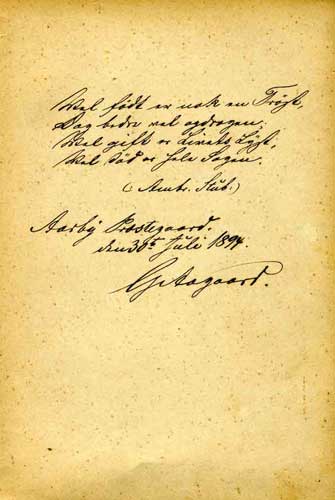 Vel født er nok en Trøst,
Dog bedre vel opdragen;
Vel gift er Livets Lyst,
Vel død er hele Sagen.
(Ambr. Stub.)
Aarby Præstegaard.
den 30te Juli 1894.
Aagaard.